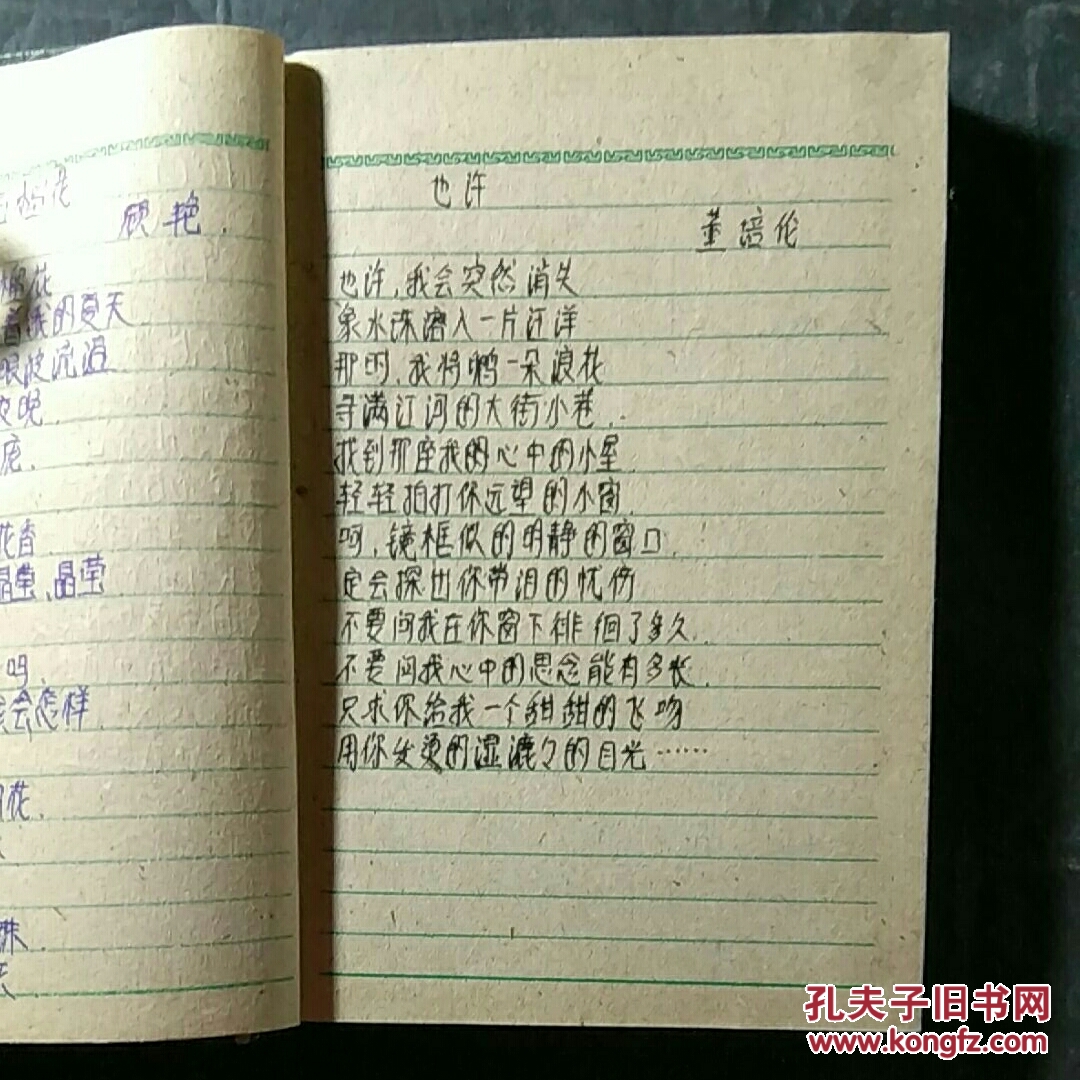 栀花
顾艳.
榴花
着我的夏天
眼波流过
夜晚
庞.
花香
晶莹、晶莹
吗.
会怎样
花.
珠
也许
董培伦
也许,我会突然消失
象水珠溶入一片汪洋
那时,我将携一朵浪花
寻满江河的大街小巷.
找到那座我的心中的小屋
轻轻拍打你远望的小窗.
呵,镜框似的明静的窗口.
定会探出你带泪的忧伤
不要问我在你窗下徘徊了多久.
不要问我心中的思念能有多长.
只求你给我一个甜甜的飞吻
用你发烫的湿漉々的目光……
孔夫子旧书网
www.kongfz.com